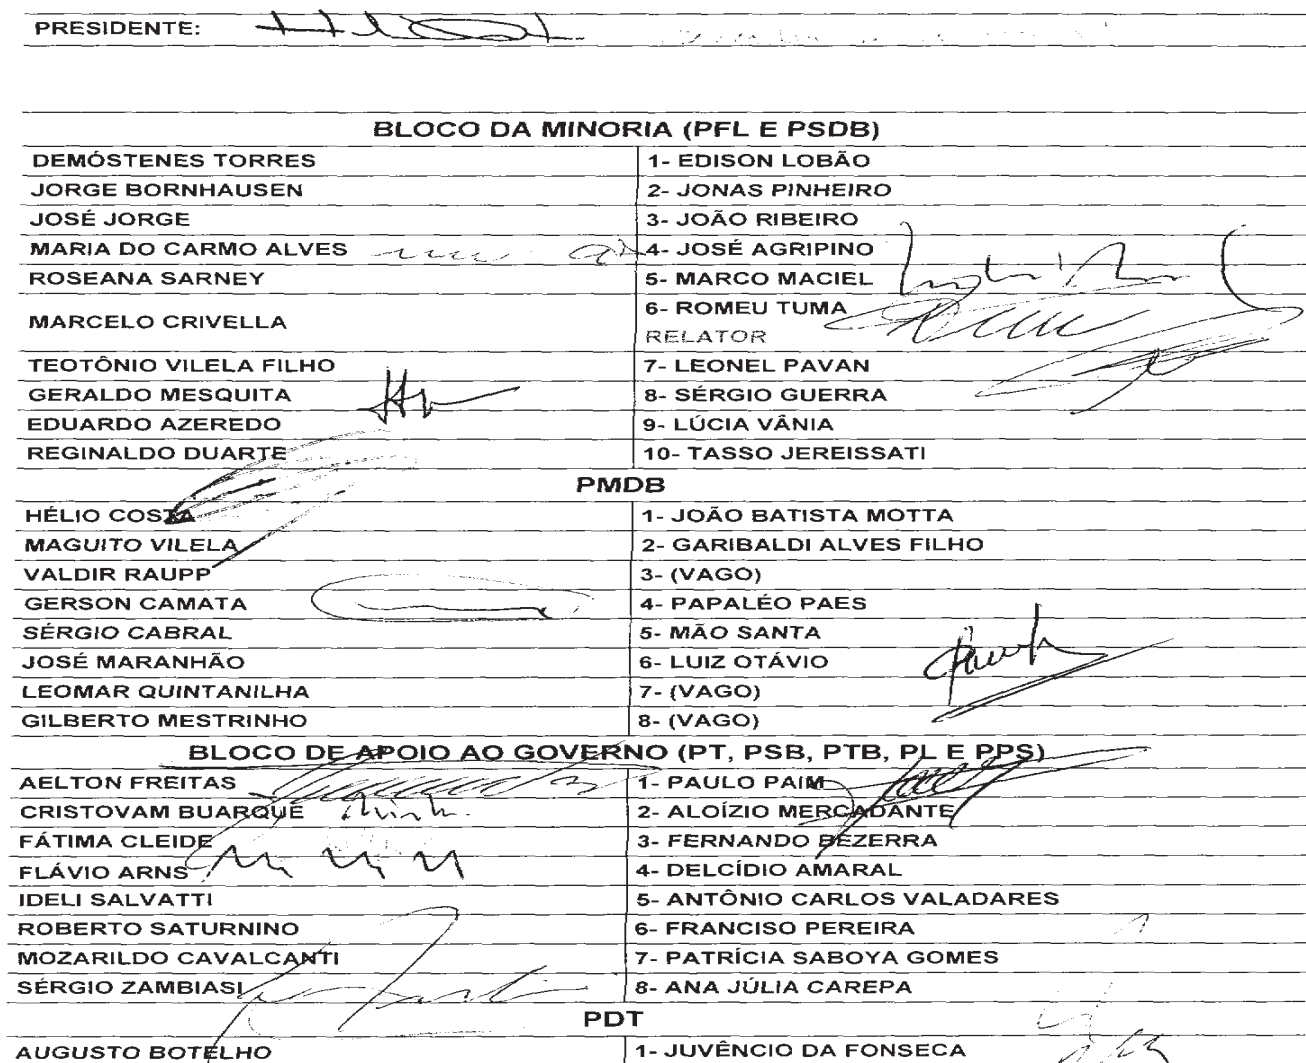 PRESIDENTE:
BLOCO DA MINORIA (PFL E PSDB)
DEMÓSTENES TORRES 1- EDISON LOBÃO
JORGE BORNHAUSEN 2- JONAS PINHEIRO
JOSÉ JORGE 3- JOÃO RIBEIRO
MARIA DO CARMO ALVES 4- JOSÉ AGRIPINO
ROSEANA SARNEY 5- MARCO MACIEL
MARCELO CRIVELLA 6- ROMEU TUMA
RELATOR
TEOTÔNIO VILELA FILHO 7- LEONEL PAVAN
GERALDO MESQUITA 8- SÉRGIO GUERRA
EDUARDO AZEREDO 9- LÚCIA VÂNIA
REGINALDO DUARTE 10- TASSO JEREISSATI
PMDB
HÉLIO COSTA 1- JOÃO BATISTA MOTTA
MAGUITO VILELA 2- GARIBALDI ALVES FILHO
VALDIR RAUPP 3- (VAGO)
GERSON CAMATA 4- PAPALÉO PAES
SÉRGIO CABRAL 5- MÃO SANTA
JOSÉ MARANHÃO 6- LUIZ OTÁVIO
LEOMAR QUINTANILHA 7- (VAGO)
GILBERTO MESTRINHO 8- (VAGO)
BLOCO DE APOIO AO GOVERNO (PT, PSB, PTB, PL E PPS)
AELTON FREITAS 1- PAULO PAIM
CRISTOVAM BUARQUE 2- ALOÍZIO MERCADANTE
FÁTIMA CLEIDE 3- FERNANDO BEZERRA
FLÁVIO ARNS 4- DELCÍDIO AMARAL
IDELI SALVATTI 5- ANTÔNIO CARLOS VALADARES
ROBERTO SATURNINO 6- FRANCISO PEREIRA
MOZARILDO CAVALCANTI 7- PATRÍCIA SABOYA GOMES
SÉRGIO ZAMBIASI 8- ANA JÚLIA CAREPA
PDT
AUGUSTO BOTELHO 1- JUVÊNCIO DA FONSECA